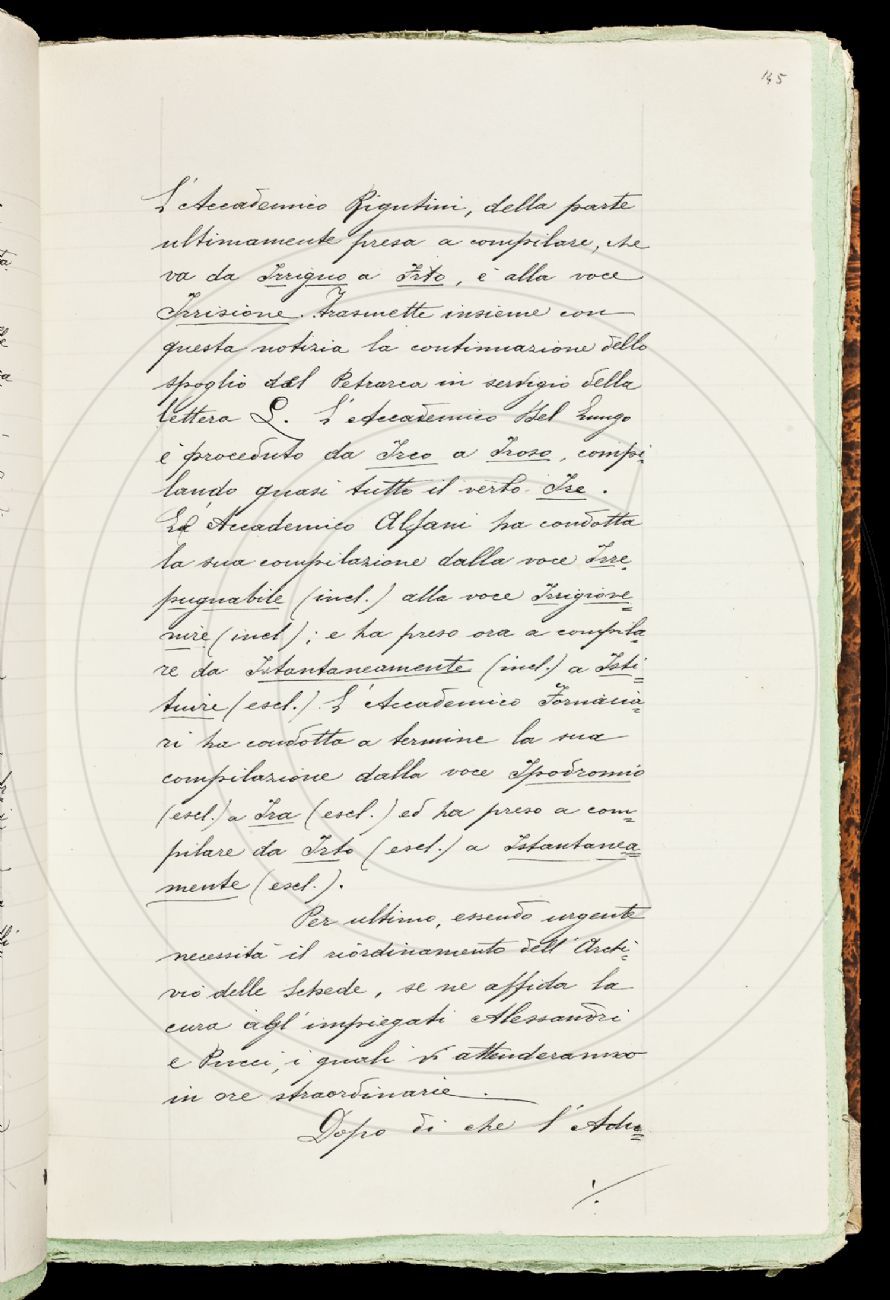 145
L'Accademico Rigutini, della parte
ultimamente presa a compilare, che
va da Irriguo a Irto, è alla voce
Irrisione. Trasmette insieme con
questa notizia la continuazione dello
spoglio del Petrarca in servigio della
lettera L. L'Accademico Del Lungo
è proceduto da Ireo a Iroso, compi-
lando quasi tutto il verbo Ire.
L'Accademico Alfani ha condotta
la sua compilazione dalla voce Irre-
pugnabile (incl.) alla voce Irrigiove-
nire (incl); e ha preso ora a compila-
re da Istantaneamente (incl.) a Isti=
tuire (escl.). L'Accademico Fornacia-
ri ha condotta a termine la sua
compilazione dalla voce Ipodromio
(escl.) a Ira (escl.) ed ha preso a com=
pilare da Irto (escl.) a Istantanea=
mente (escl.).
Per ultimo, essendo urgente
necessità il riordinamento dell'Archi=
vio delle Schede, se ne affida la
cura agl'impiegati Alessandri
e Pucci, i quali vi attenderanno
in ore straordinarie.
Dopo di che l'Adu=
./.